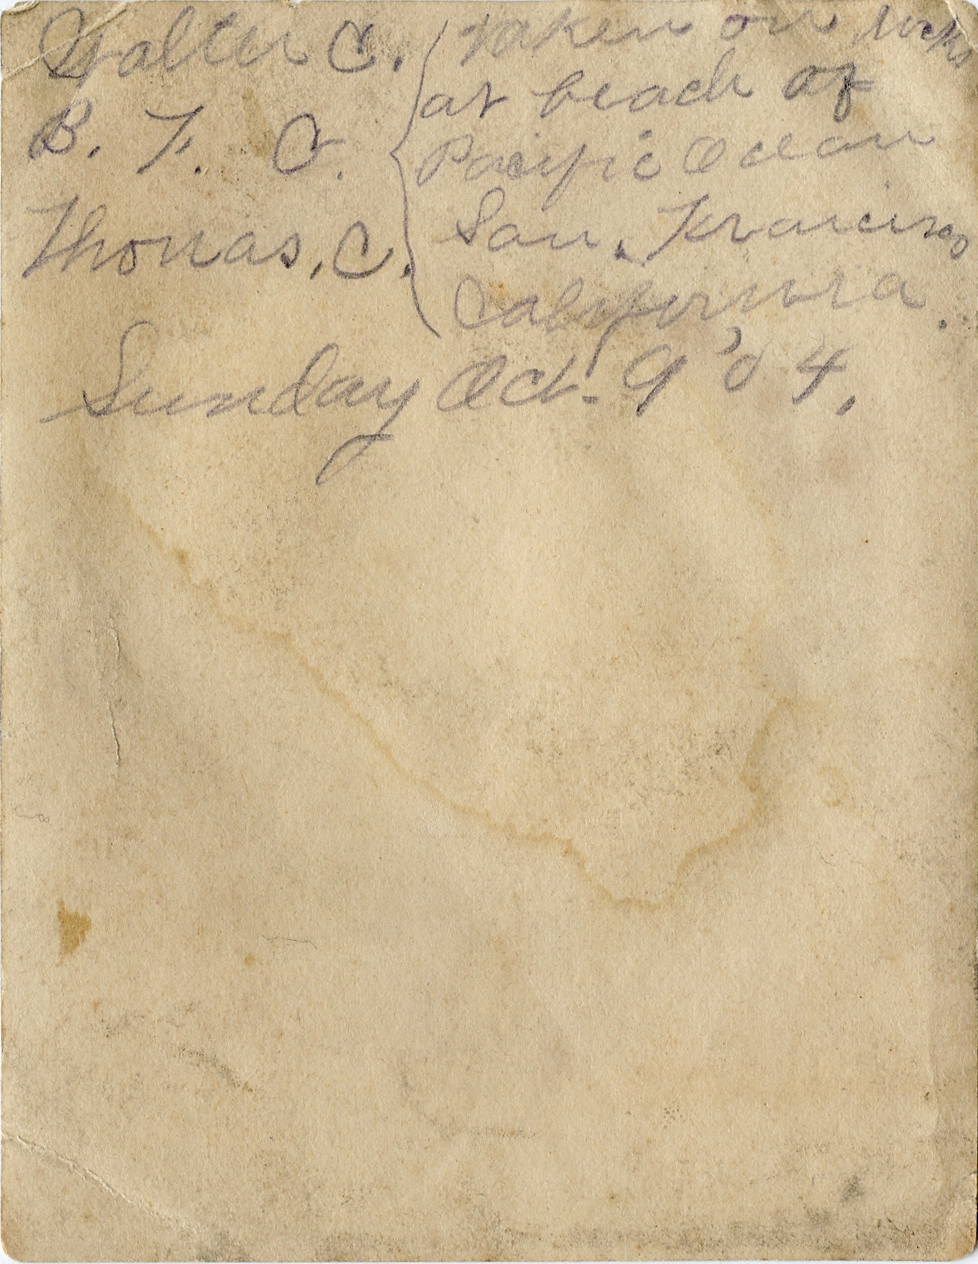 Walter C. { Taken on rocks
B. F. C. { at beach of
Pacific Ocean
Thomas. C. { San. Francisco
California.
Sunday Oct. 9 '04.